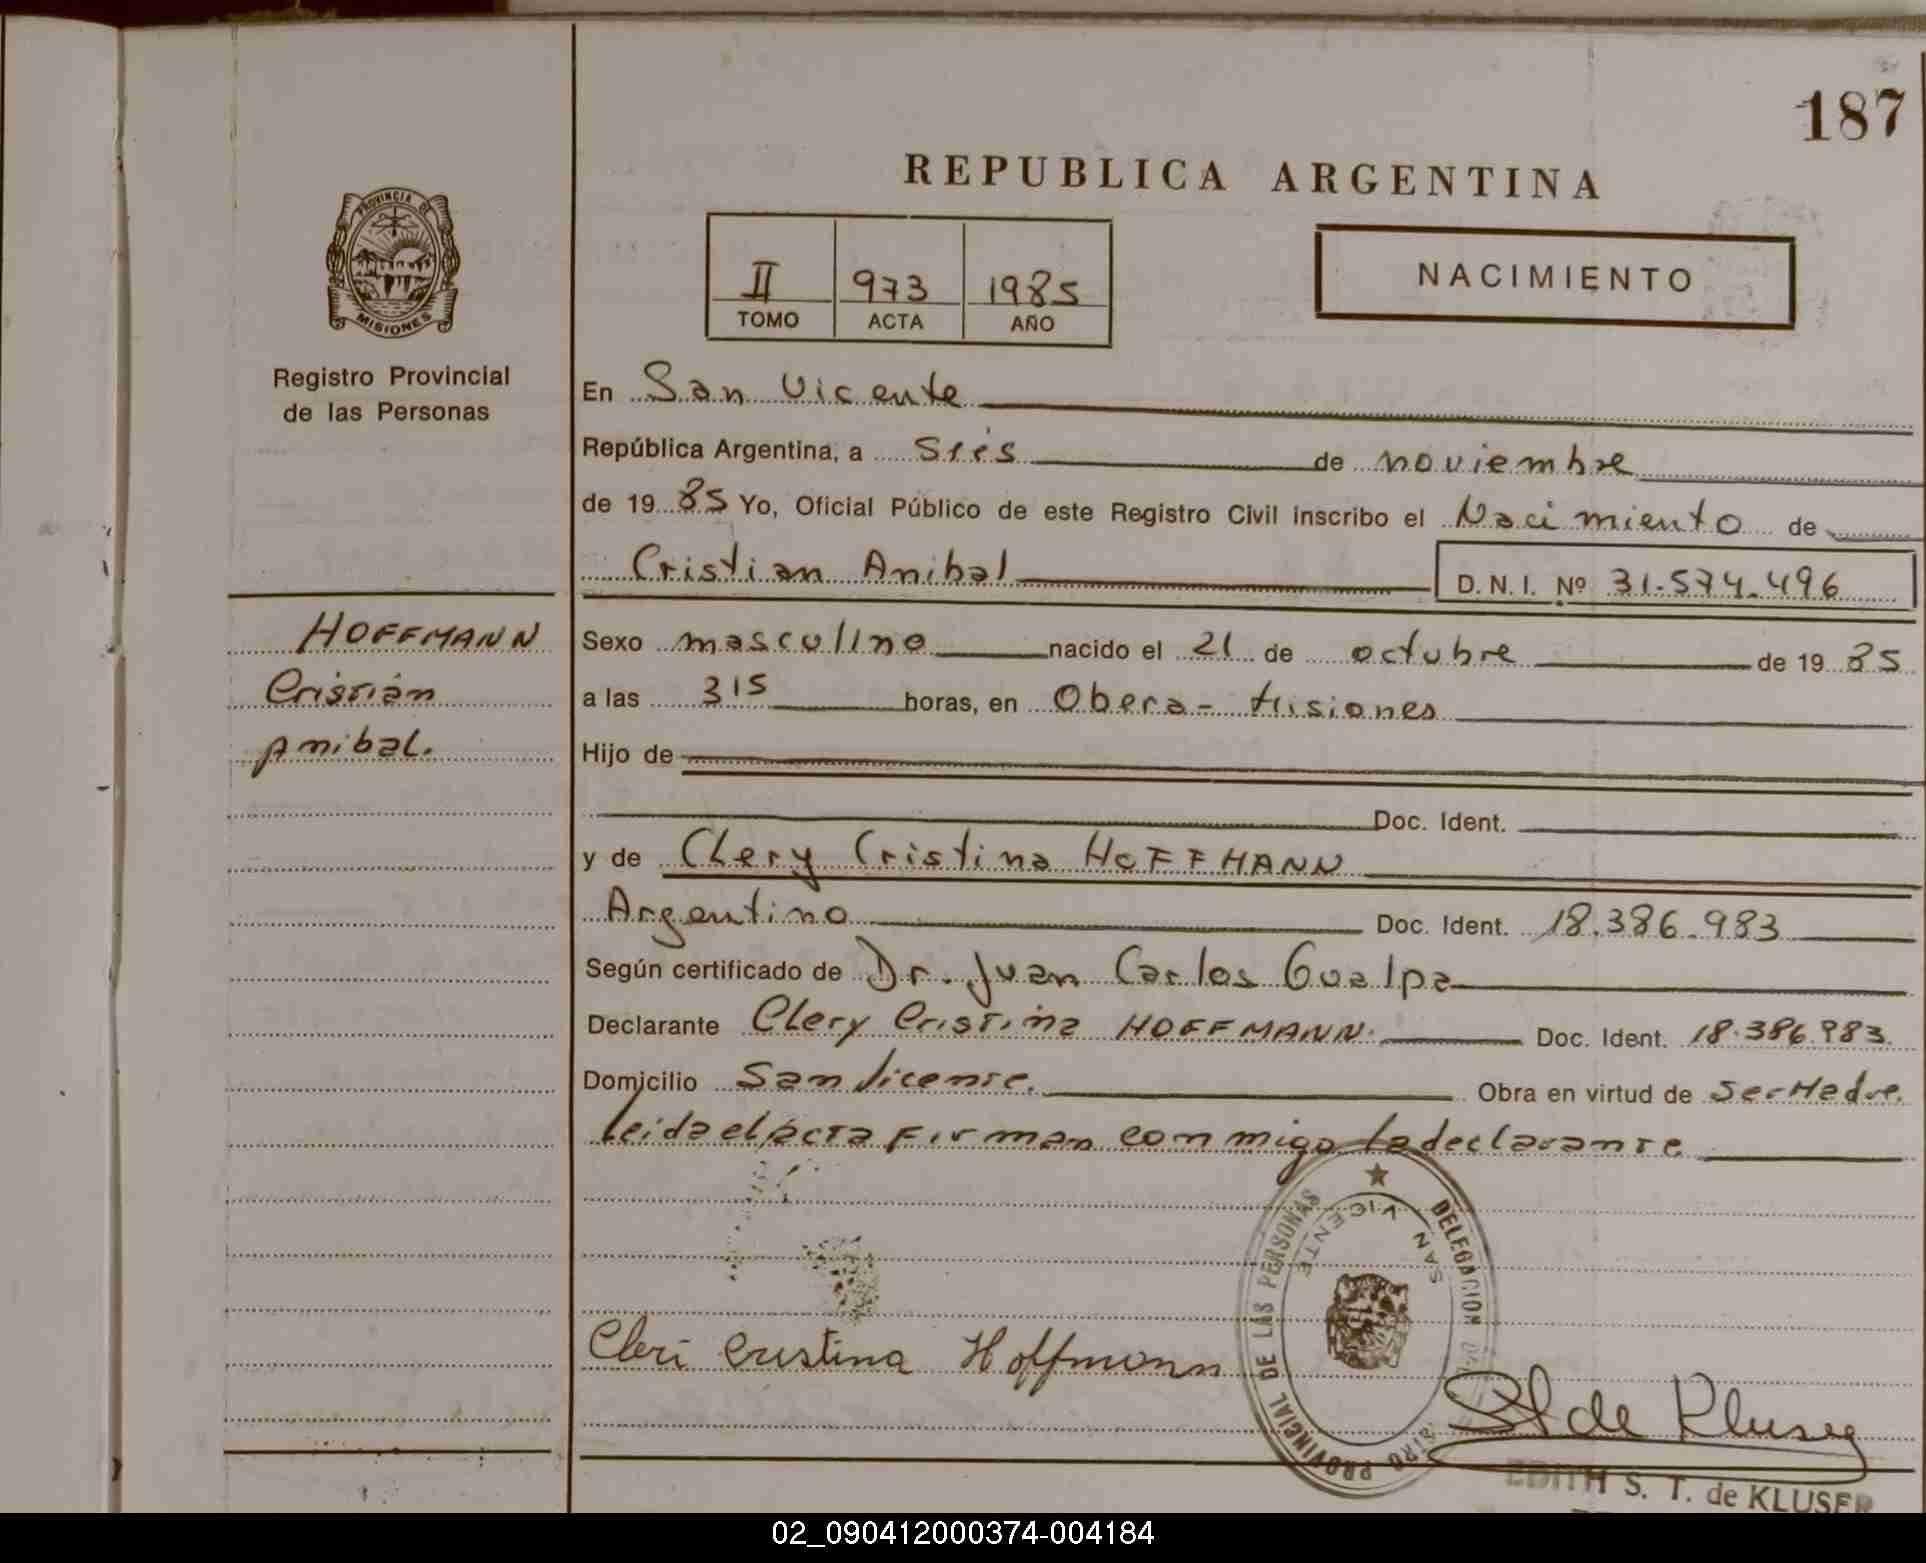 187
REPUBLICA ARGENTINA
PROVINCIA DE
MISIONES
Registro Provincial
de las Personas
II 973 1985
TOMO ACTA AÑO
NACIMIENTO
En San Vicente
República Argentina, a Siés de noviembre
de 19 85 Yo, Oficial Público de este Registro Civil inscribo el Nacimiento de
Cristian Anibal D. N. I. Nº 31.574.496
HOFFMANN
Cristián
Anibal.
Sexo masculino nacido el 21 de octubre de 19 85
a las 3 15 horas, en Obera - Misiones
Hijo de
Doc. Ident.
y de Clery Cristina HOFFMANN
Argentino Doc. Ident. 18.386.983
Según certificado de Dr. Juan Carlos Gualpa
Declarante Clery Cristina HOFFMANN. Doc. Ident. 18.386.983.
Domicilio San Vicente. Obra en virtud de ser Madre.
Leida el acta firman conmigo la declarante
DELEGACION SAN VICENTE
PROVINCIAL DE LAS PERSONAS
Cleri Cristina Hoffmann
S T de Kluser
EDITH S. T. de KLUSER
02_090412000374-004184